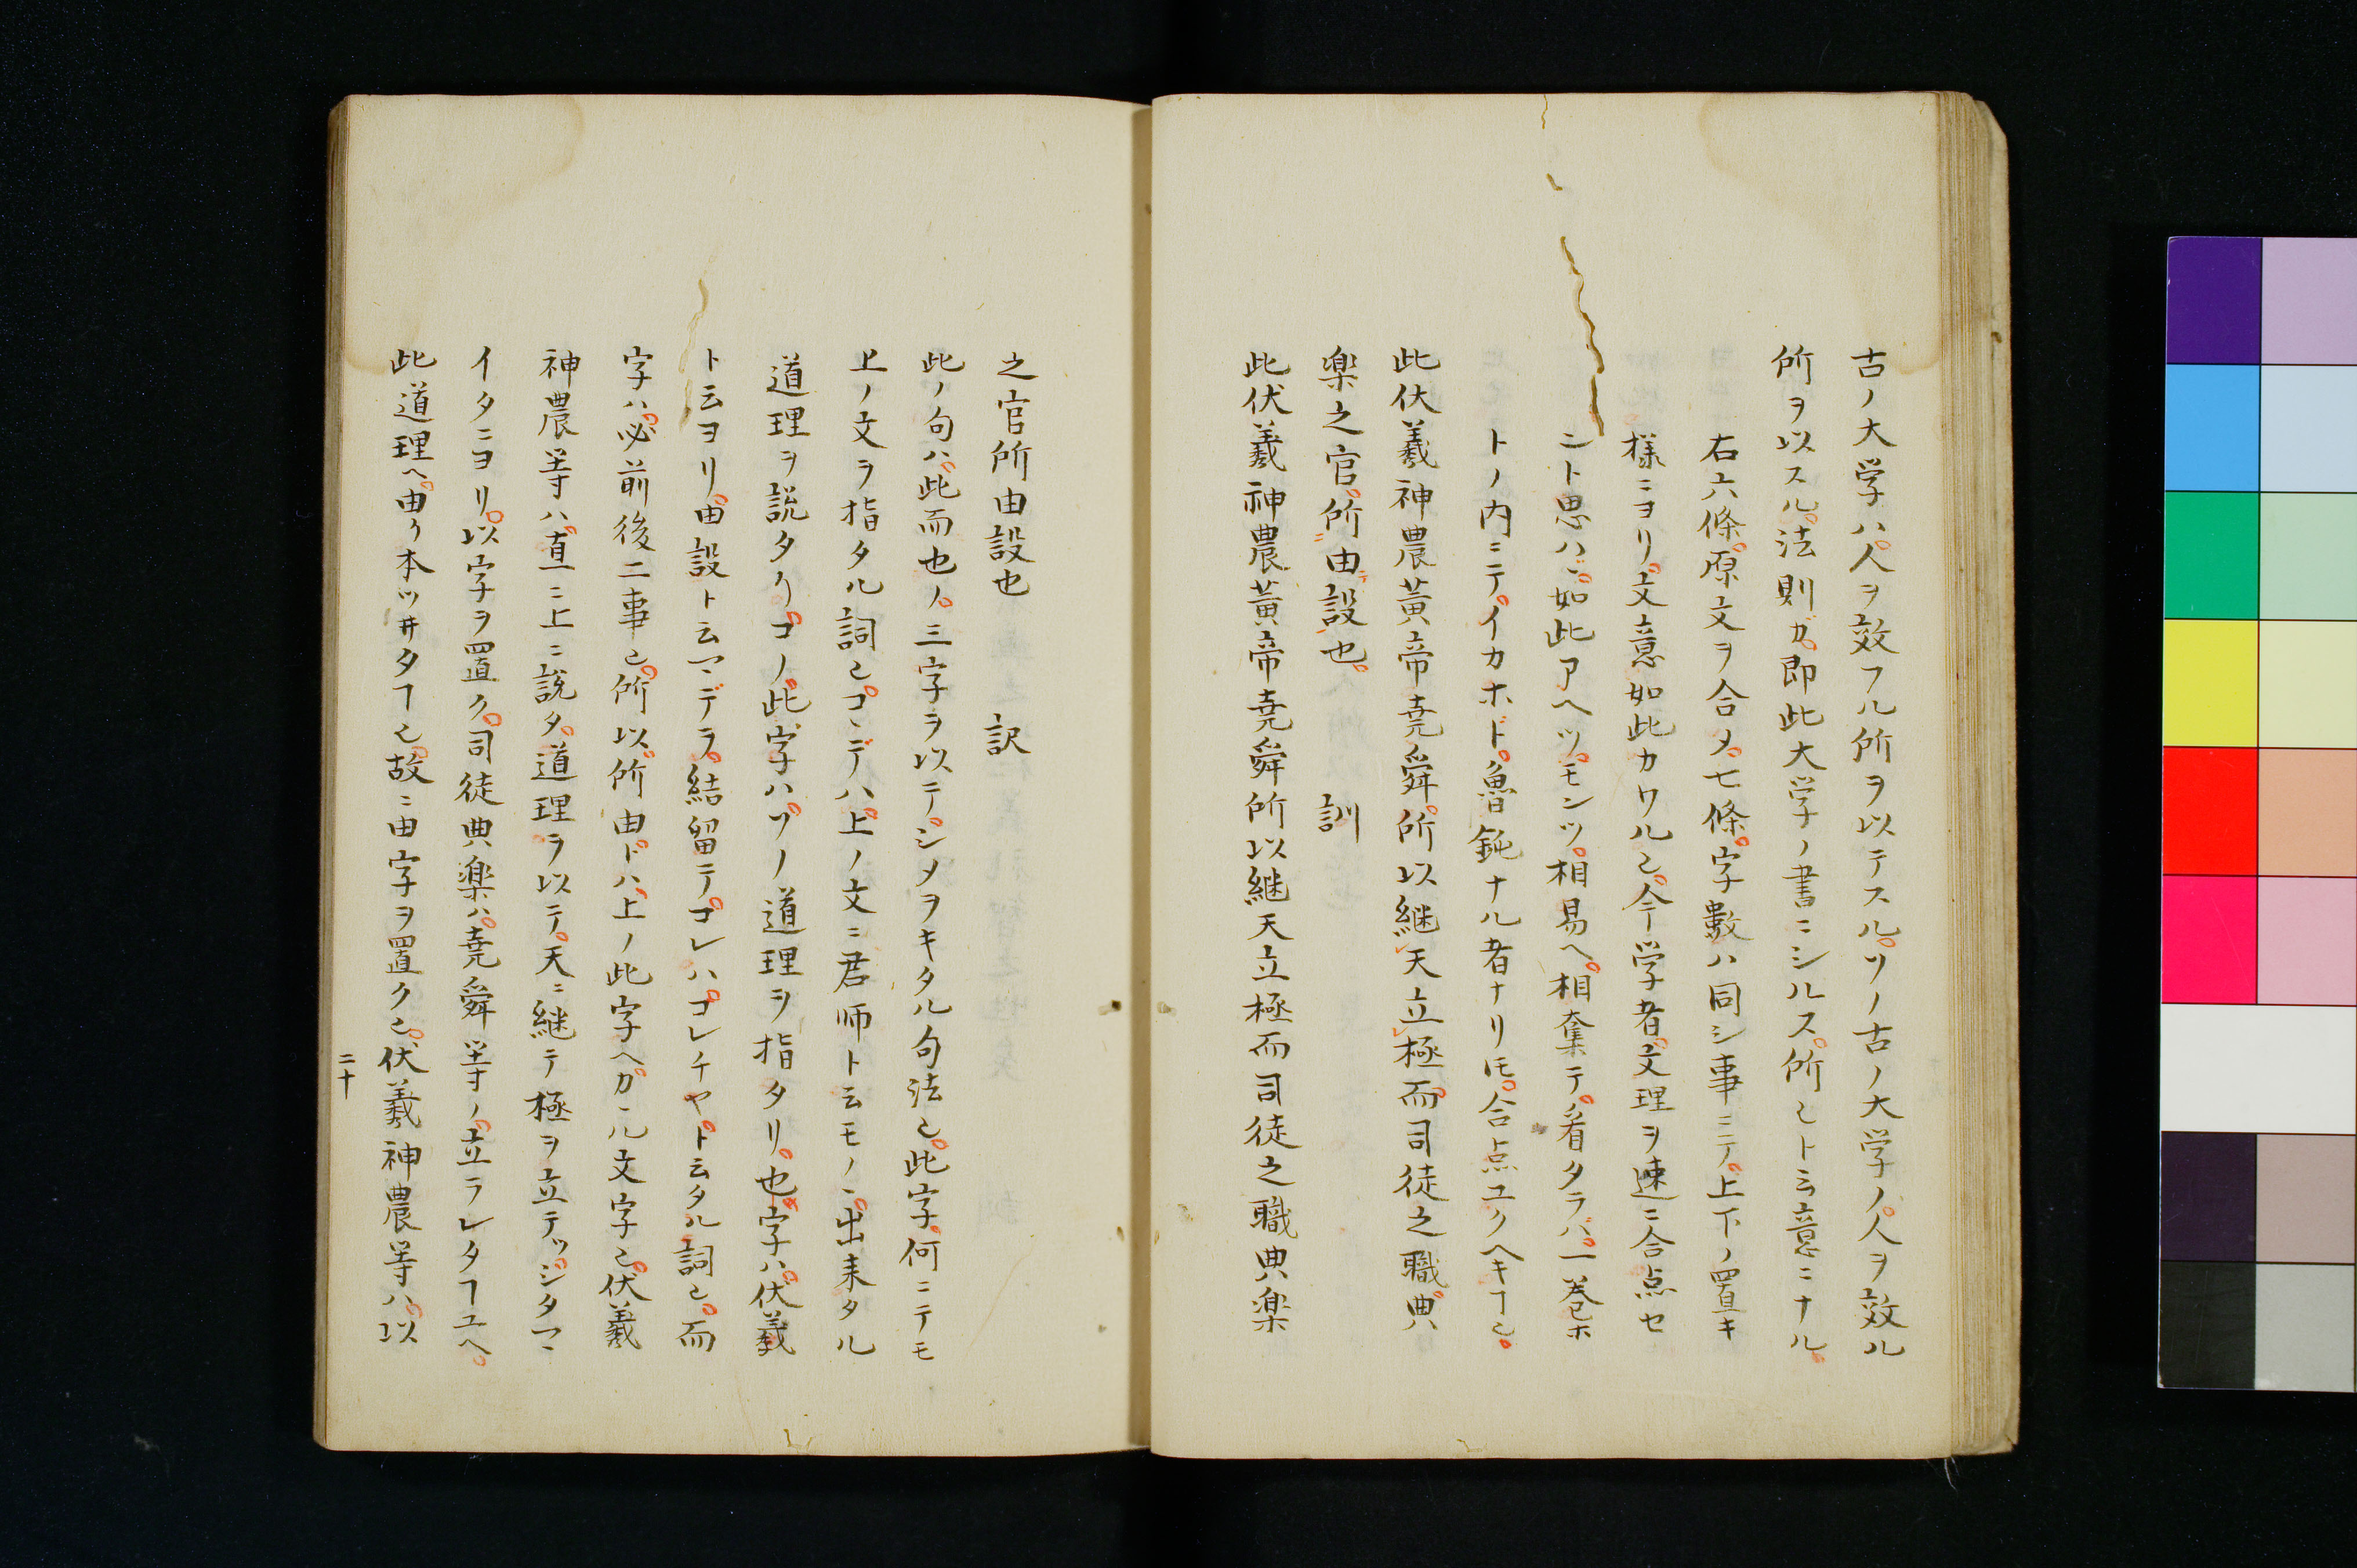 古ノ大学ハ。人ヲ效フル所ヲ以テスル。ソノ古ノ大学ノ。人ヲ效ル
所ヲ以スル。法則ガ。即此大学ノ書ニシルス。所也ト云意ニナル。
右六條。原文ヲ合メ。七條。字數ハ同シ事ニテ。上下ノ置キ
様ニヨリ。文意如此カワル也。今学者。文理ヲ速ニ合点セ
ント思ハヾ。如此アヘツ。モンツ。相易ヘ。相奪テ。看タラバ。一巻ホ
トノ内ニテ。イカホド。魯鈍ナル者ナリ𪜈。合点ユクヘキヿ也。
此伏羲神農黃帝堯舜。所以継天立極。而司徒之職。典
楽之官。所由設也。 訓
此伏羲神農黃帝堯舜所以継天立極而司徒之職典楽
之官所由設也 訳
此ノ句ハ。此而也ノ。三字ヲ以テ。シメヲキタル句法也。此字。何ニテモ
上ノ文ヲ指タル詞也。コヽデハ。上ノ文ニ君師ト云モノヽ。出来タル
道理ヲ説タリ。コノ。此字ハ。ソノ道理ヲ指タリ。也字ハ。伏羲
ト云ヨリ。由設ト云マデヲ。結留テ。コレハ。コレチヤ。ト云タル詞也。而
字ハ。必前後二事也。所以。所由。ドハ。上ノ此字ヘ。カヽル文字也。伏羲
神農等ハ。直ニ上ニ説タ。道理ヲ以テ。天ニ継テ極ヲ立テツ。ジタマヽ
イタニヨリ。以字ヲ置ク。司徒典楽ハ。堯舜等ノ。立ラレタヿユヘ。
此道理ヘ。由リ本ツ井タヿ也。故ニ由字ヲ置ク也。伏羲神農等ハ。以
二十